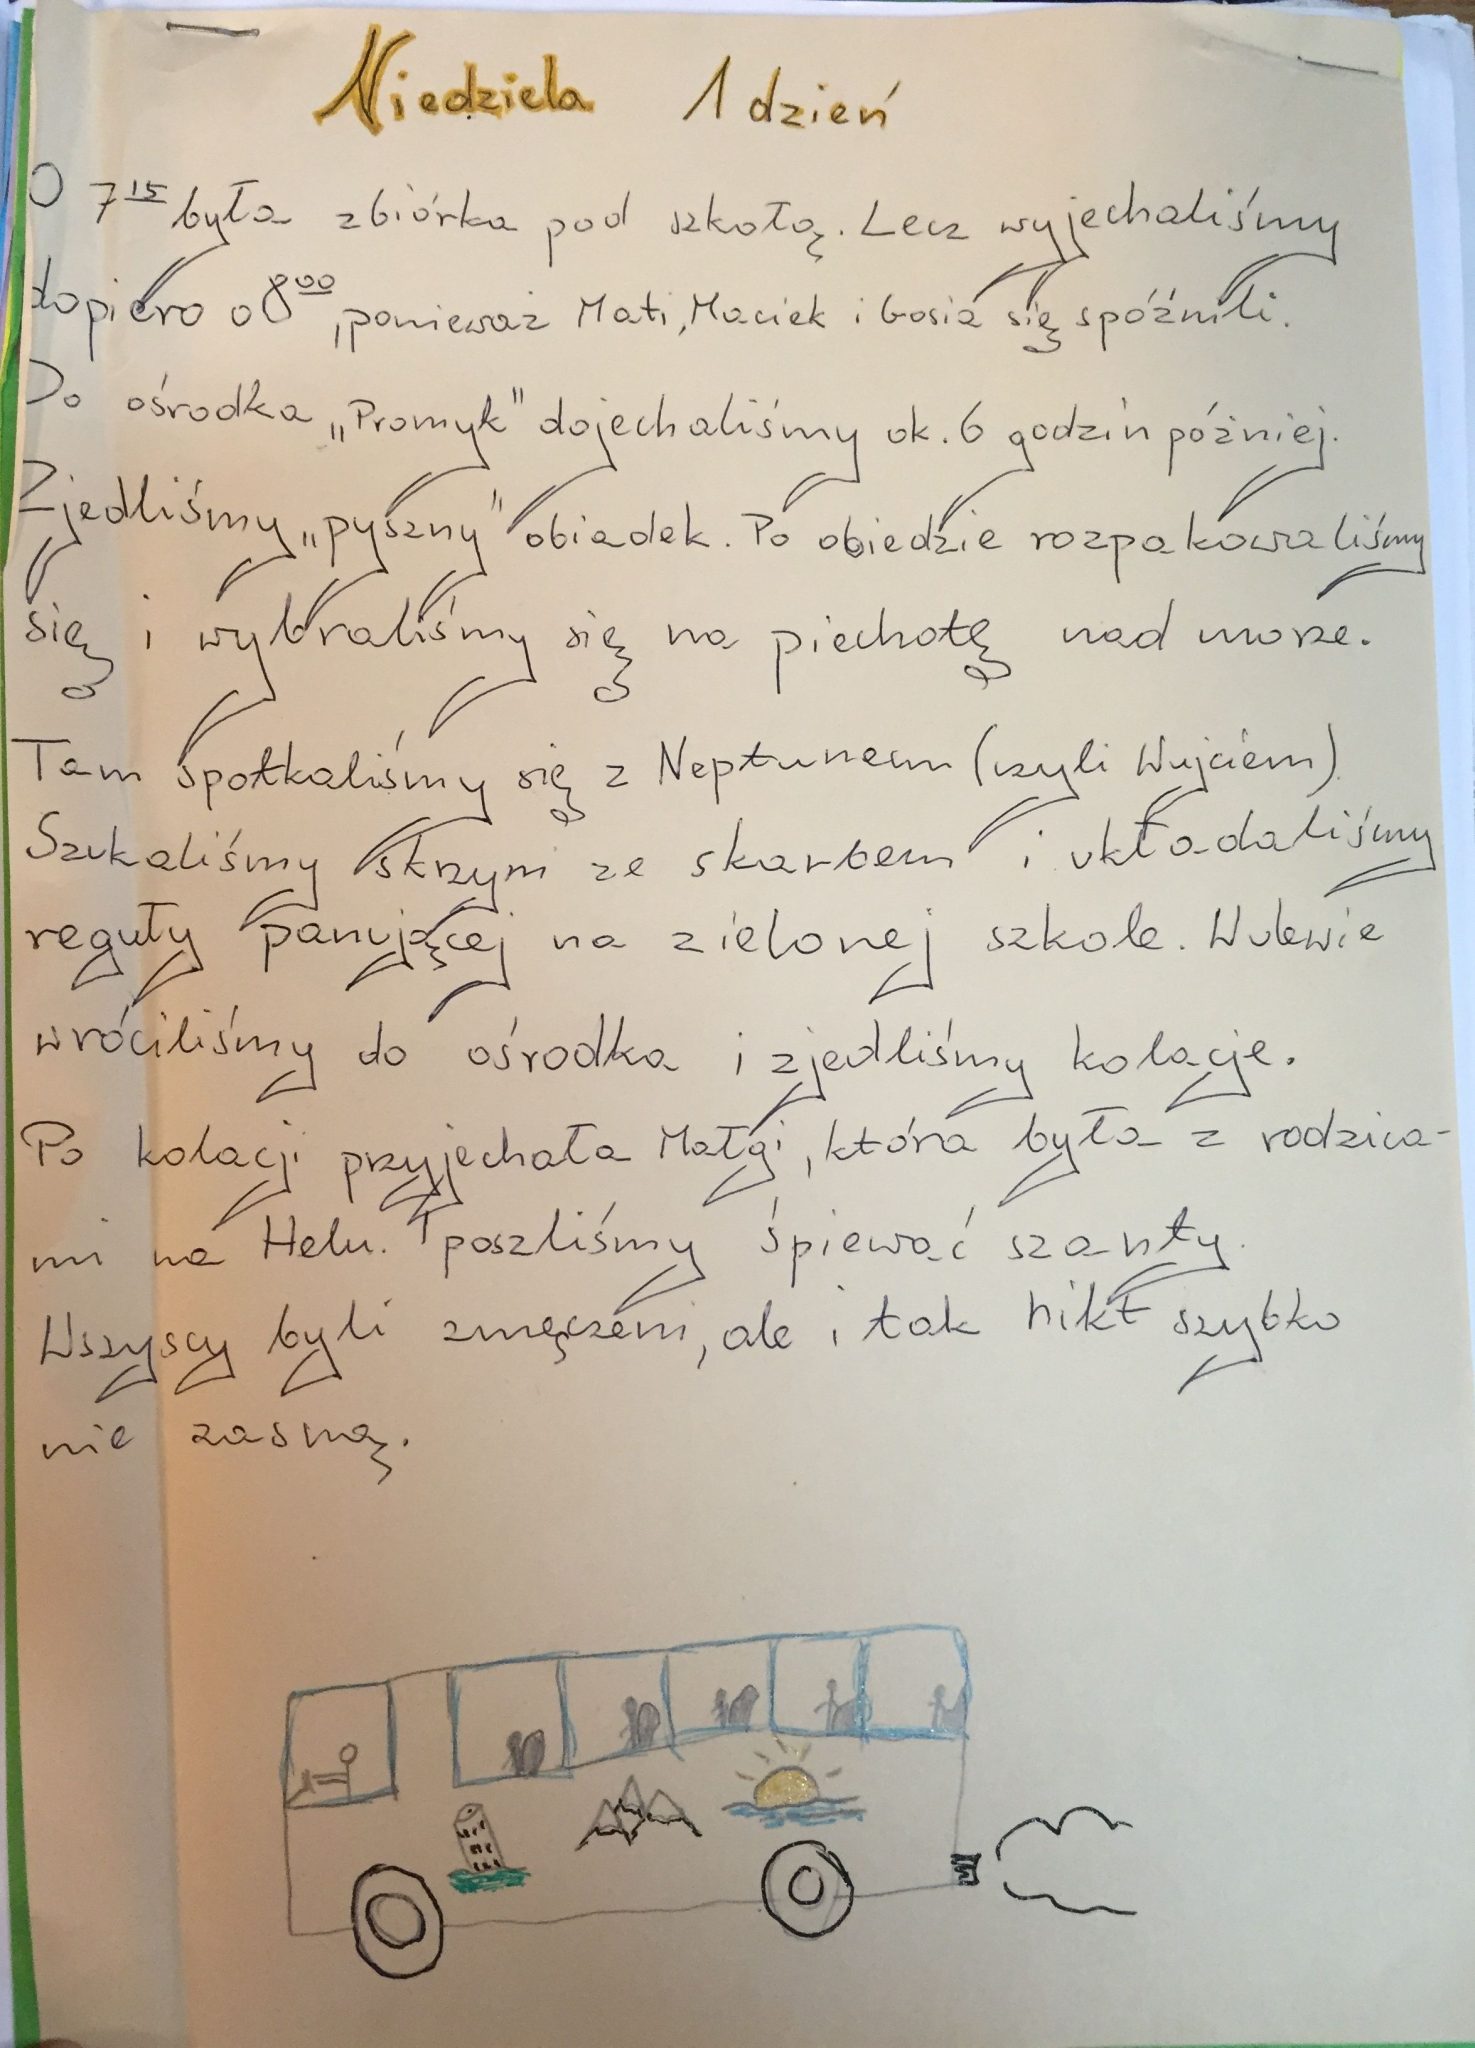 Niedziela 1 dzień
O 7 15 była zbiórka pod szkołą. Lecz wyjechaliśmy
dopiero o 8 00, ponieważ Mati, Maciek i Gosia się spóźnili.
Do ośrodka „Promyk" dojechaliśmy ok. 6 godzin później.
Zjedliśmy „pyszny" obiadek. Po obiedzie rozpakowaliśmy
się i wybraliśmy się na piechotę nad morze.
Tam spotkaliśmy się z Neptunem (czyli Wujciem)
Szukaliśmy skrzyni ze skarbem i układaliśmy
reguły panującej na zielonej szkole. W ulewie
wróciliśmy do ośrodka i zjedliśmy kolacje.
Po kolacji przyjechała Małgi, która była z rodzica-
mi na Helu. I poszliśmy śpiewać szanty.
Wszyscy byli zmęczeni, ale i tak nikt szybko
nie zasną.